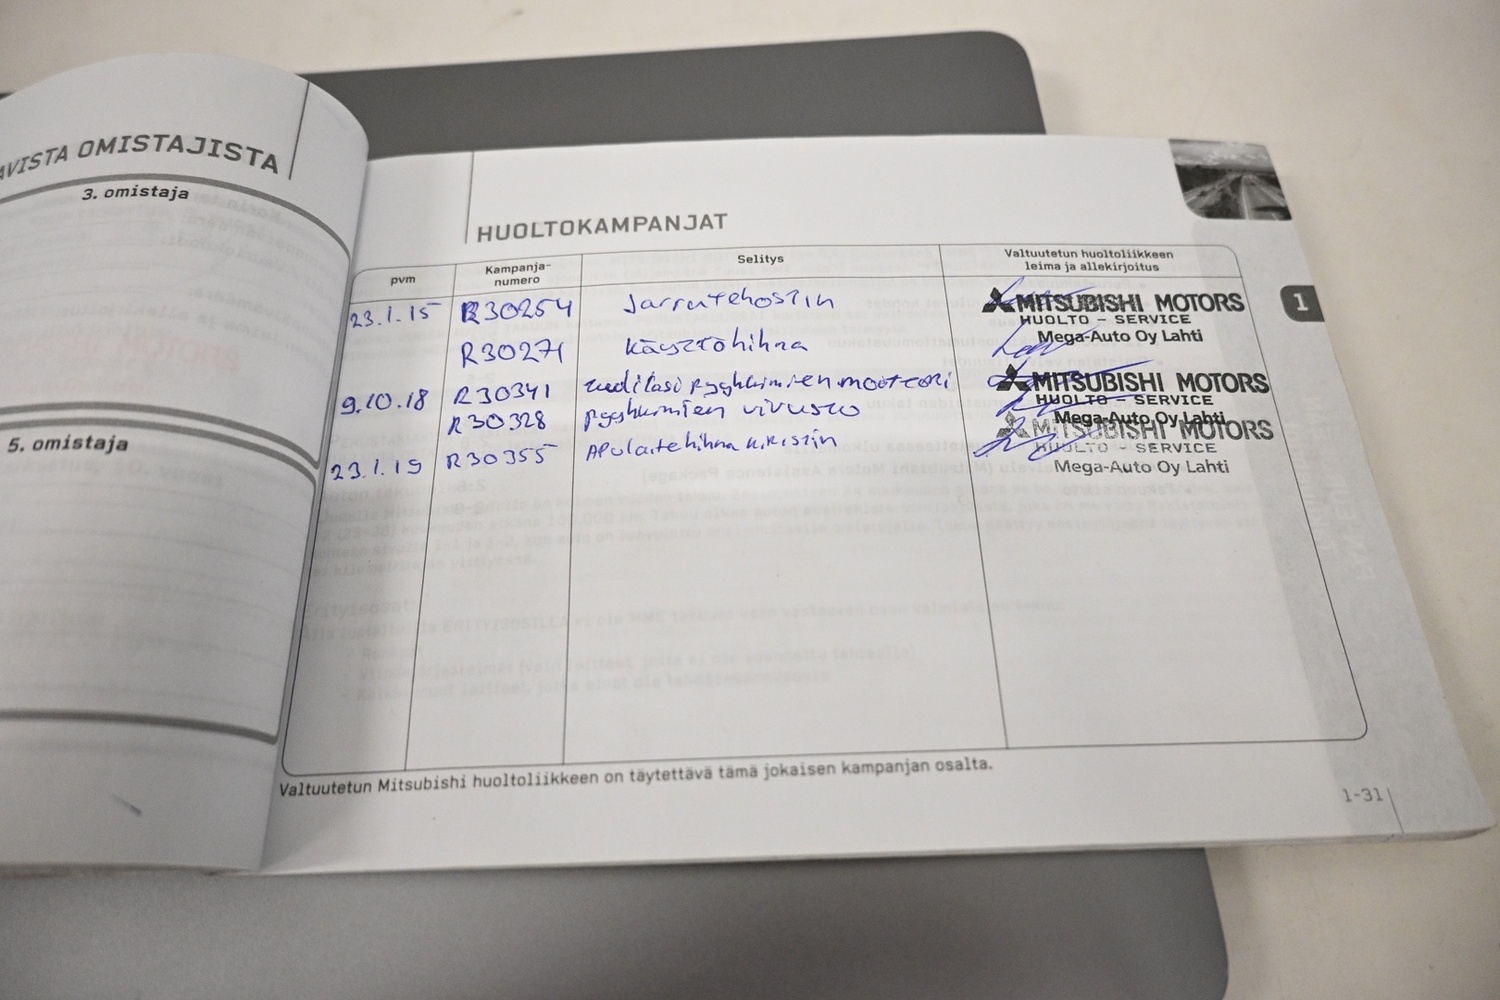 AVISTA OMISTAJISTA
3. omistaja
5. omistaja
HUOLTOKAMPANJAT
pvm
Kampanja-
numero
Selitys
Valtuutetun huoltoliikkeen
leima ja allekirjoitus
23.1.15 R30254 Jarrutehostin
MITSUBISHI MOTORS
HUOLTO - SERVICE
Mega-Auto Oy Lahti
R30271 käyttöhihna
9.10.18 R30341 tuulilasi pyyhkimien moottori
MITSUBISHI MOTORS
HUOLTO - SERVICE
Mega-Auto Oy Lahti
R30328 pyyhkimien vivusto
23.1.19 R30355 Apulaitehihna kiristin
MITSUBISHI MOTORS
HUOLTO - SERVICE
Mega-Auto Oy Lahti
1
Valtuutetun Mitsubishi huoltoliikkeen on täytettävä tämä jokaisen kampanjan osalta.
1-31